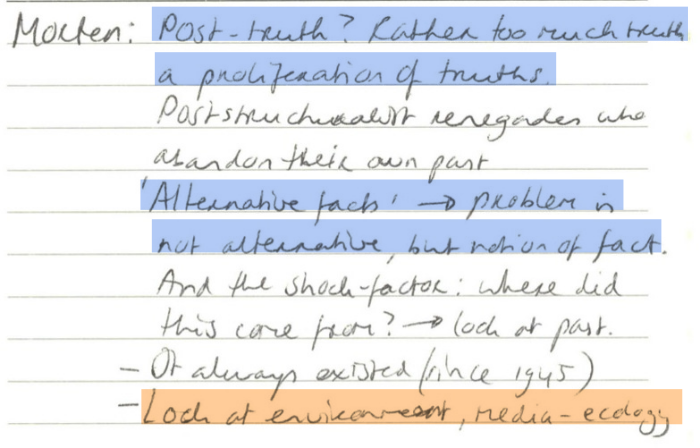 Morten: Post-truth? Rather too much truth
a proliferation of truths.
Poststructuralist renegades who
abandon their own past
'Alternative facts' → problem is
not alternative, but notion of fact.
And the shock-factor: where did
this come from? → look at past.
- It always existed (since 1945)
- Look at environment, media-ecology